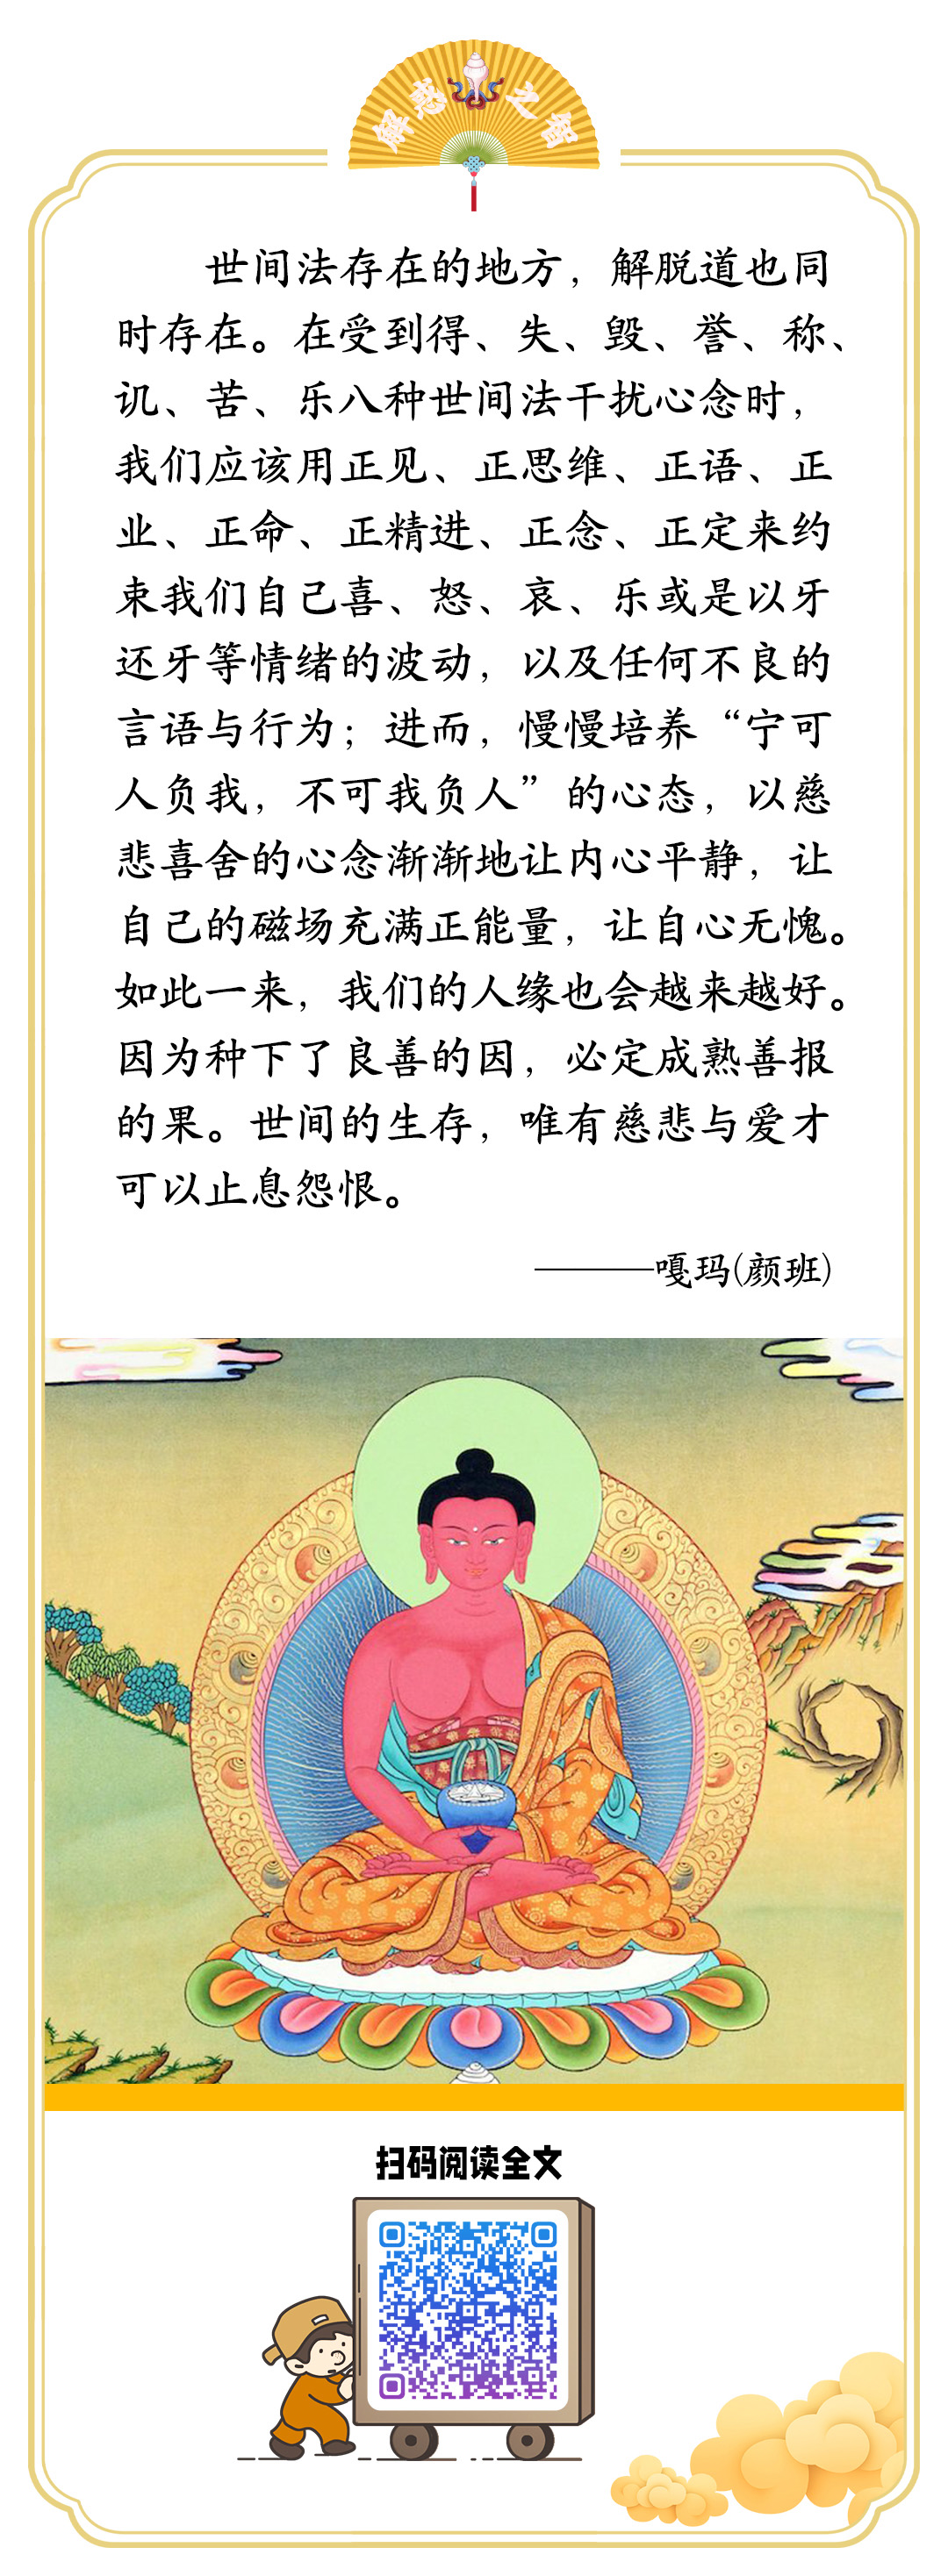 解惑之智
世间法存在的地方，解脱道也同
时存在。在受到得、失、毁、誉、称、
讥、苦、乐八种世间法干扰心念时，
我们应该用正见、正思维、正语、正
业、正命、正精进、正念、正定来约
束我们自己喜、怒、哀、乐或是以牙
还牙等情绪的波动，以及任何不良的
言语与行为；进而，慢慢培养“宁可
人负我，不可我负人”的心态，以慈
悲喜舍的心念渐渐地让内心平静，让
自己的磁场充满正能量，让自心无愧。
如此一来，我们的人缘也会越来越好。
因为种下了良善的因，必定成熟善报
的果。世间的生存，唯有慈悲与爱才
可以止息怨恨。
———嘎玛(颜班)
扫码阅读全文